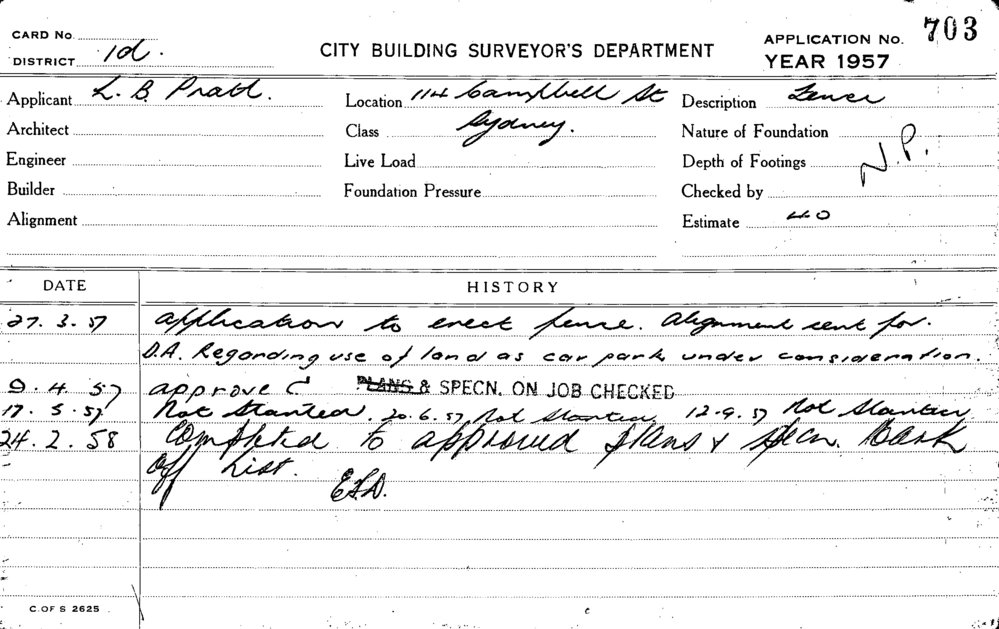 CARD No.
DISTRICT 1d.
CITY BUILDING SURVEYOR'S DEPARTMENT
APPLICATION No. 703
YEAR 1957
Applicant L. B. Pratt.
Location 114 Campbell St
Description Fence
Architect
Class Sydney.
Nature of Foundation
Engineer
Live Load
Depth of Footings N.P.
Builder
Foundation Pressure
Checked by
Alignment
Estimate 40
DATE HISTORY
27. 3. 57 application to erect fence. Alignment sent for.
D.A. Regarding use of land as car park under consideration.
9. 4. 57 approve C PLANS & SPECN. ON JOB CHECKED
17. 5. 57 Not Started. 20.6.57 Not Started 12-9.57 Not Started
24. 2. 58 Completed to approved plans & specn.
off List.
C. OF S 2625